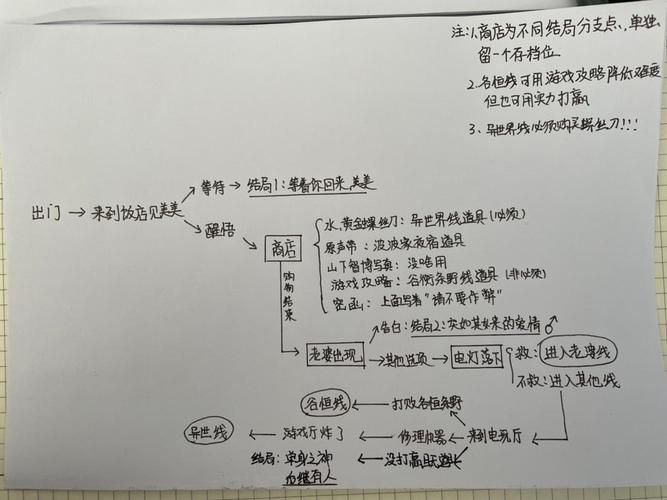 注:1.商店为不同结局分支点,单独
留一个存档位
2.谷恒线可用游戏攻略降低难度
但也可用实力打赢
3.异世界线必须购买螺丝刀!!!
出门→来到饭店见美美
等待→结局1:等着你回来,美美
醒悟
商店
水,黄金螺丝刀:异世界线道具(必须)
原声带:波波家夜宿道具
山下智博写真:没啥用
游戏攻略:谷恒条野线道具(非必须)
密函:上面写着"请不要作弊"
购物结束
老婆出现
告白:结局2:突如其来的爱情♂
→其他选项→电灯落下
救:进入老婆线
不救:进入其他线
谷恒线←打败谷恒条野
异世线←游戏厅炸了←修理机器←来到电玩厅
结局:单身之神←没打赢且无道具
血继有人